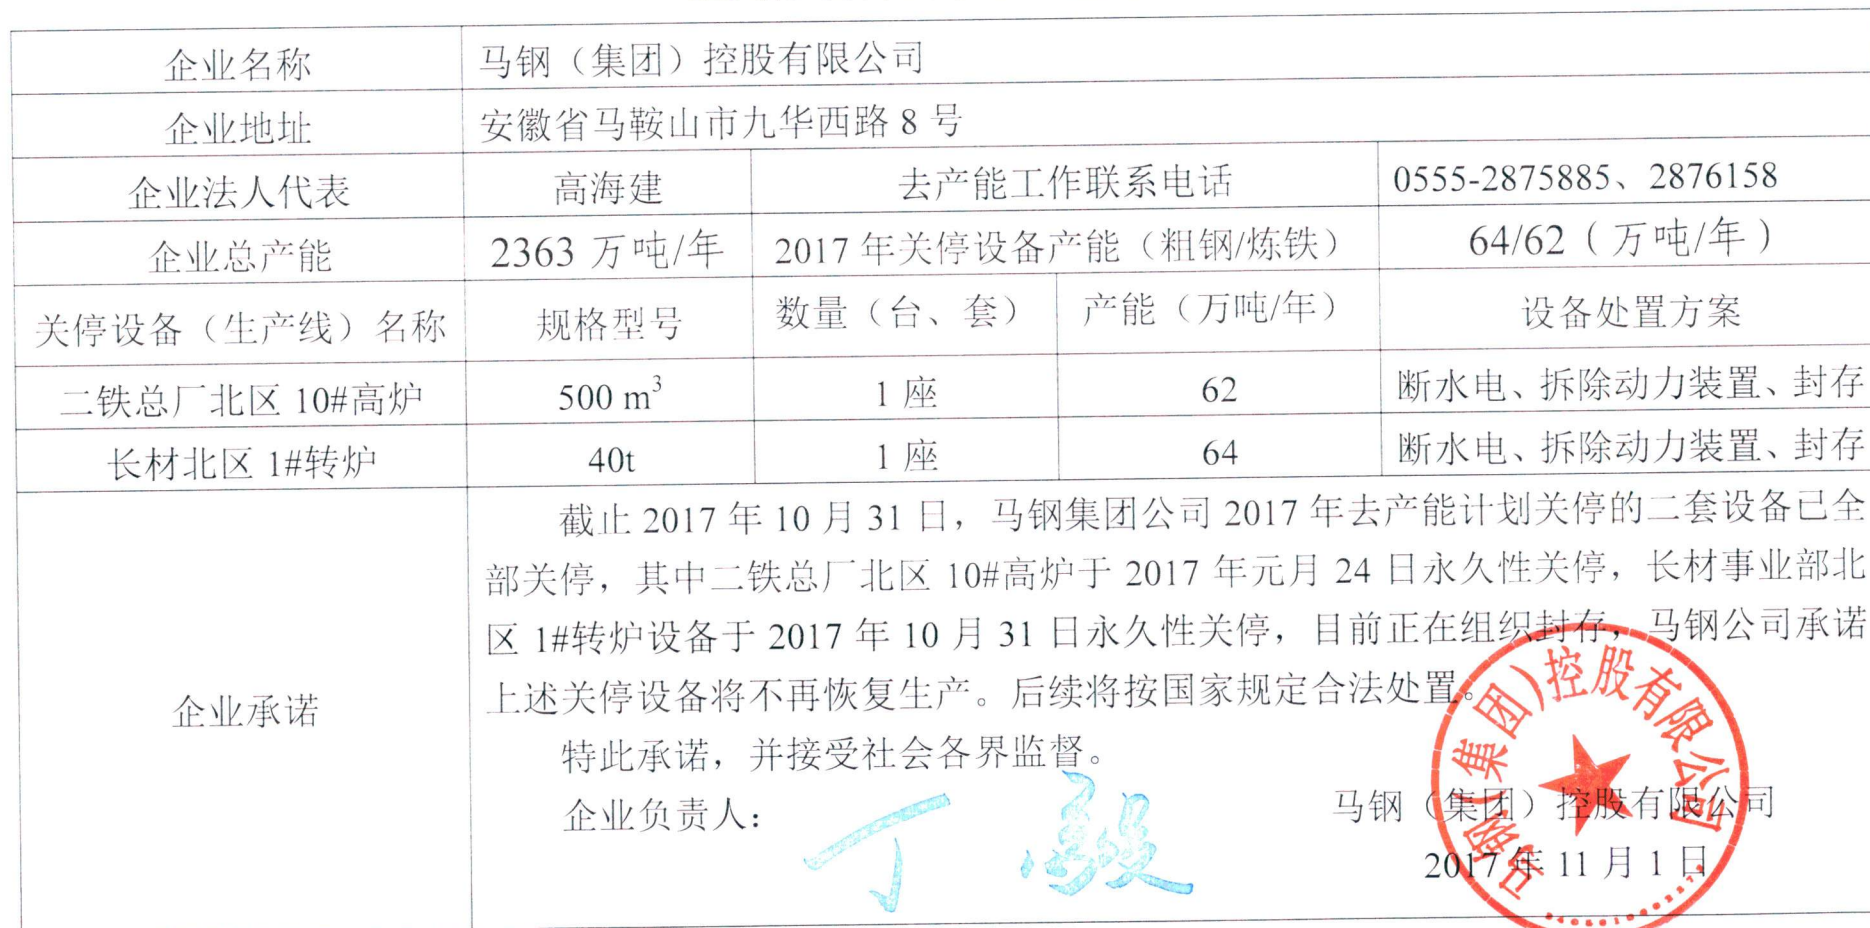 企业名称 马钢（集团）控股有限公司
企业地址 安徽省马鞍山市九华西路 8 号
企业法人代表 高海建 去产能工作联系电话 0555-2875885、2876158
企业总产能 2363 万吨/年 2017 年关停设备产能（粗钢/炼铁） 64/62（万吨/年）
关停设备（生产线）名称 规格型号 数量（台、套） 产能（万吨/年） 设备处置方案
二铁总厂北区 10#高炉 500 m³ 1 座 62 断水电、拆除动力装置、封存
长材北区 1#转炉 40t 1 座 64 断水电、拆除动力装置、封存
企业承诺
截止 2017 年 10 月 31 日，马钢集团公司 2017 年去产能计划关停的二套设备已全
部关停，其中二铁总厂北区 10#高炉于 2017 年元月 24 日永久性关停，长材事业部北
区 1#转炉设备于 2017 年 10 月 31 日永久性关停，目前正在组织封存，马钢公司承诺
上述关停设备将不再恢复生产。后续将按国家规定合法处置。
特此承诺，并接受社会各界监督。
企业负责人： 丁毅
马钢（集团）控股有限公司
2017 年 11 月 1 日
马钢(集团)控股有限公司